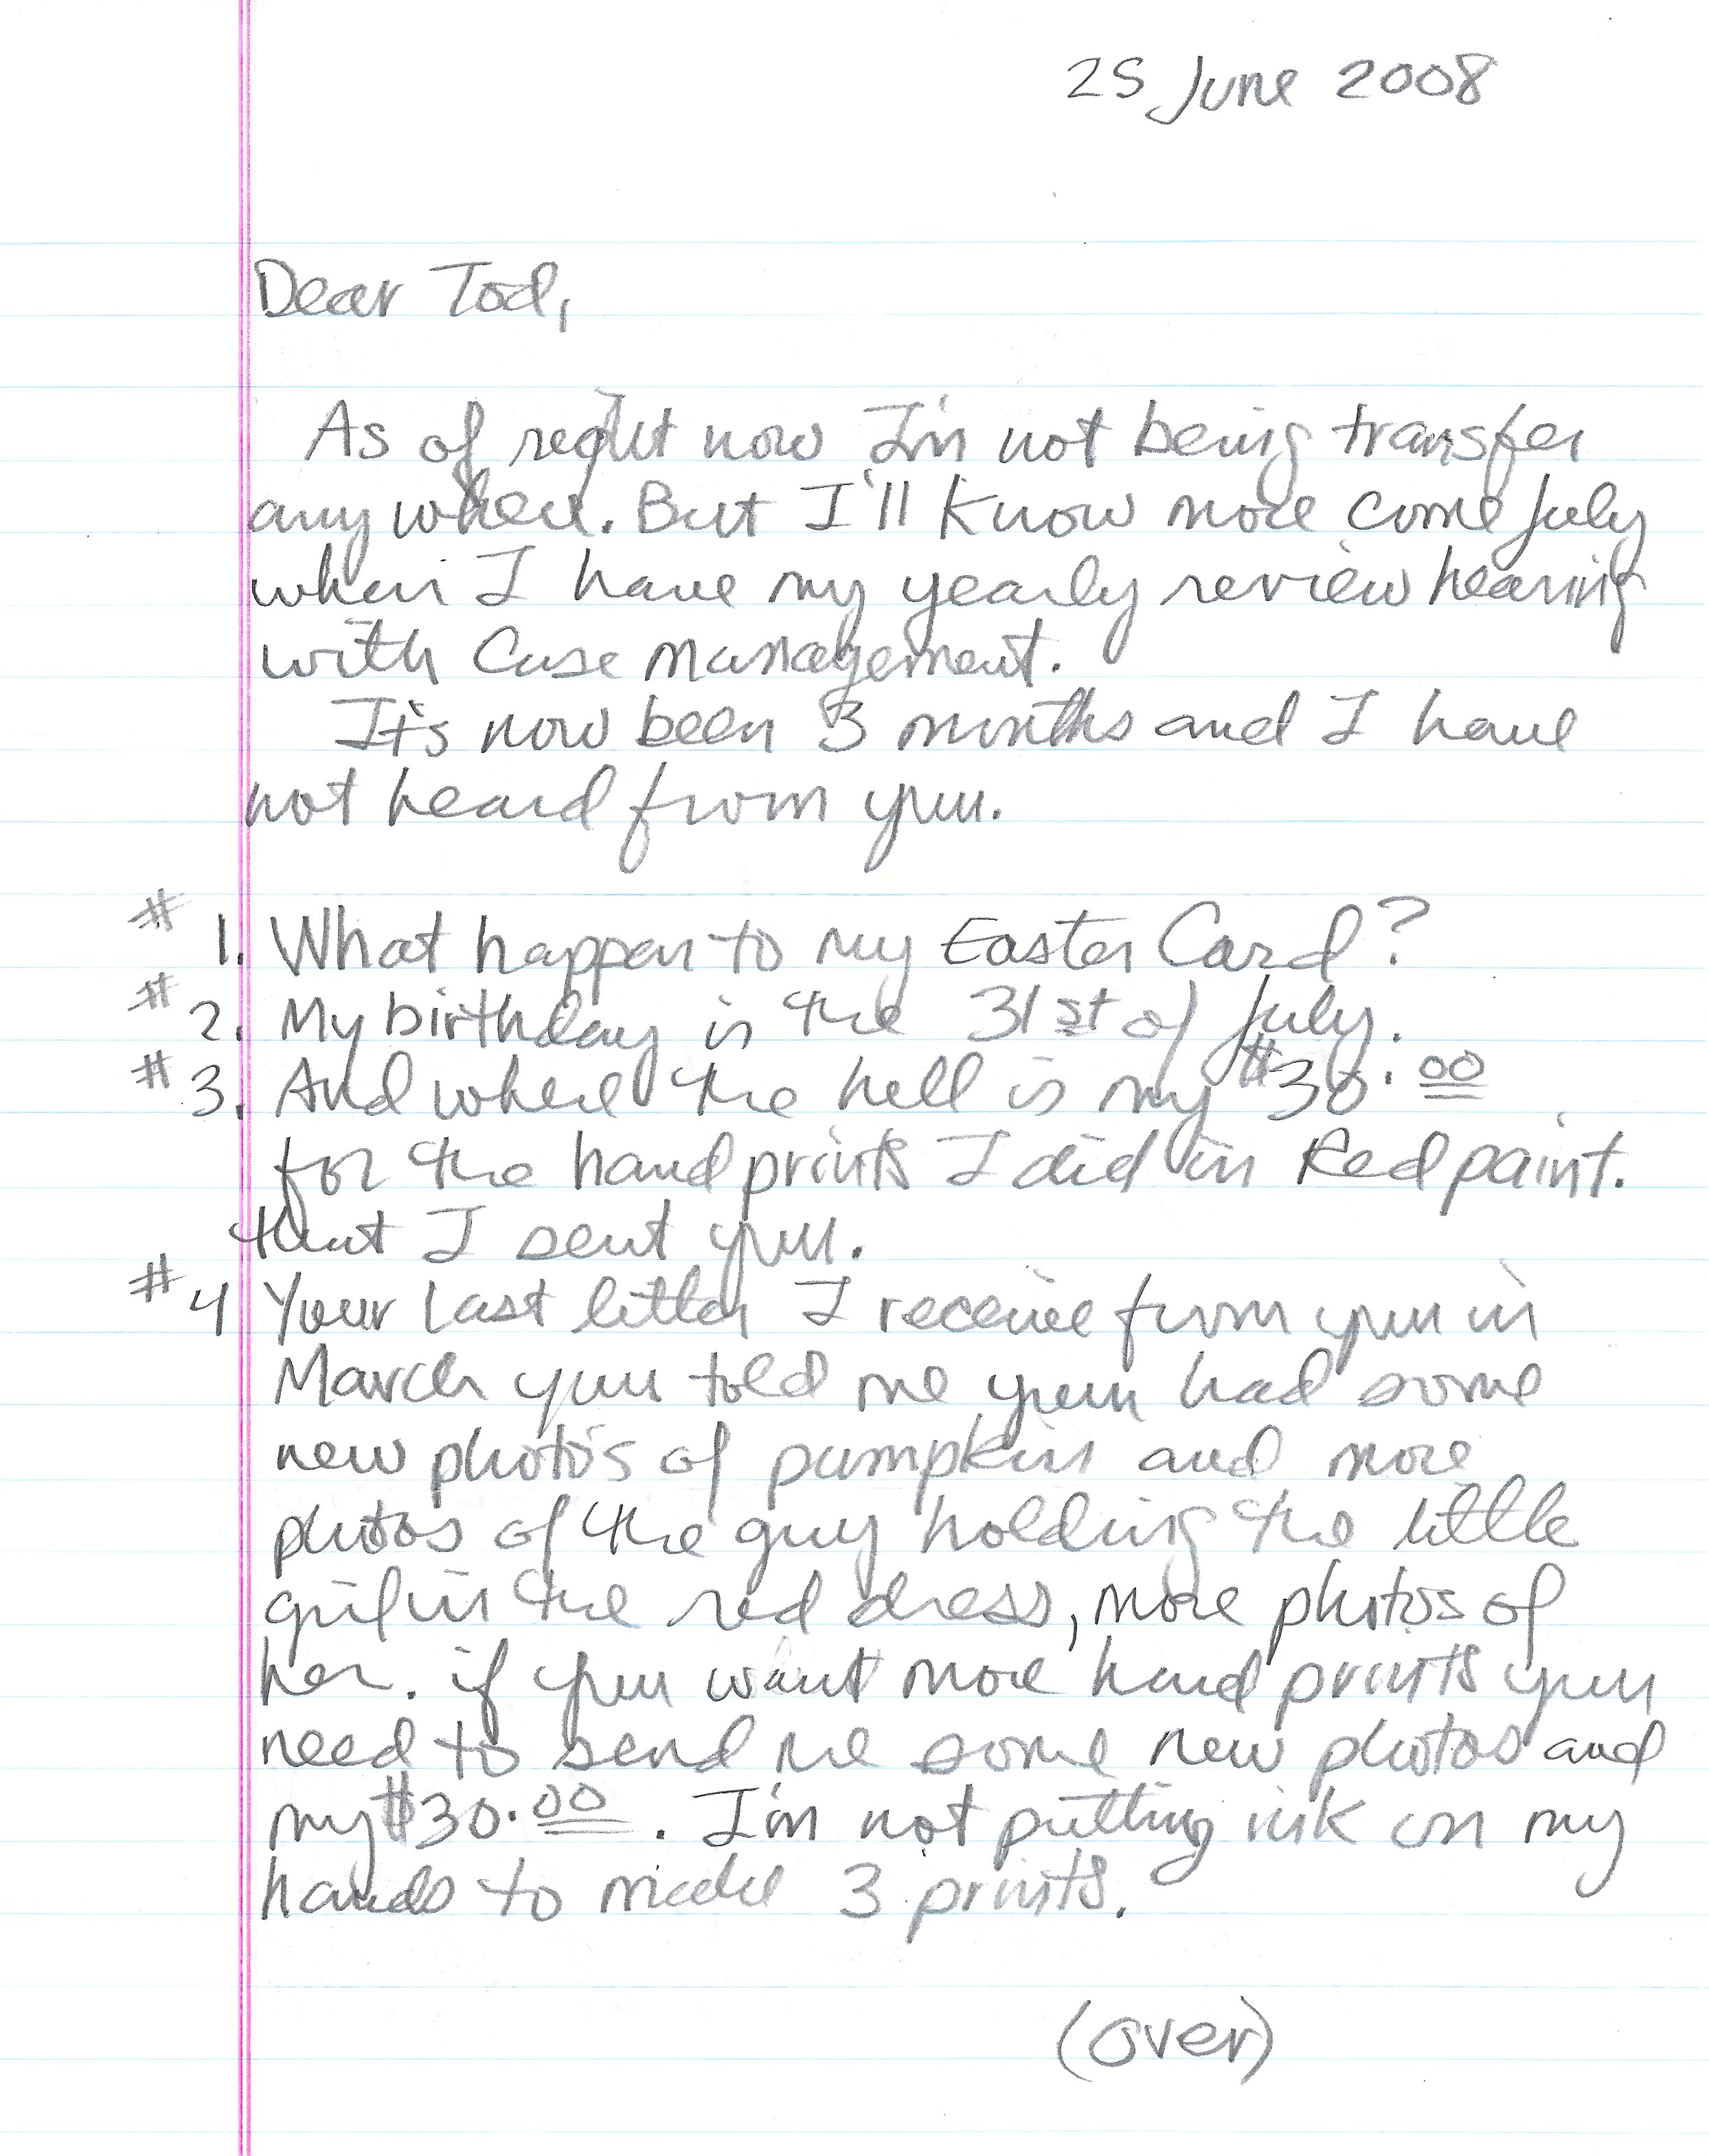 25 June 2008
Dear Tod,
As of right now I'm not being transfer
any where. But I'll know more come July
when I have my yearly review hearing
with Case management.
It's now been 3 months and I have
not heard from you.
#1. What happen to my Easter Card?
#2. My birthday is the 31st of July.
#3. And where the hell is my $30.00
for the hand prints I did in Red paint.
that I sent you.
#4 Your last letter I receive from you in
March you told me you had some
new photos of pumpkin and more
photos of the guy holding the little
girl in the red dress, more photos of
her. if you want more hand prints you
need to send me some new photos and
my $30.00. I'm not putting ink on my
hands to make 3 prints.
(over)